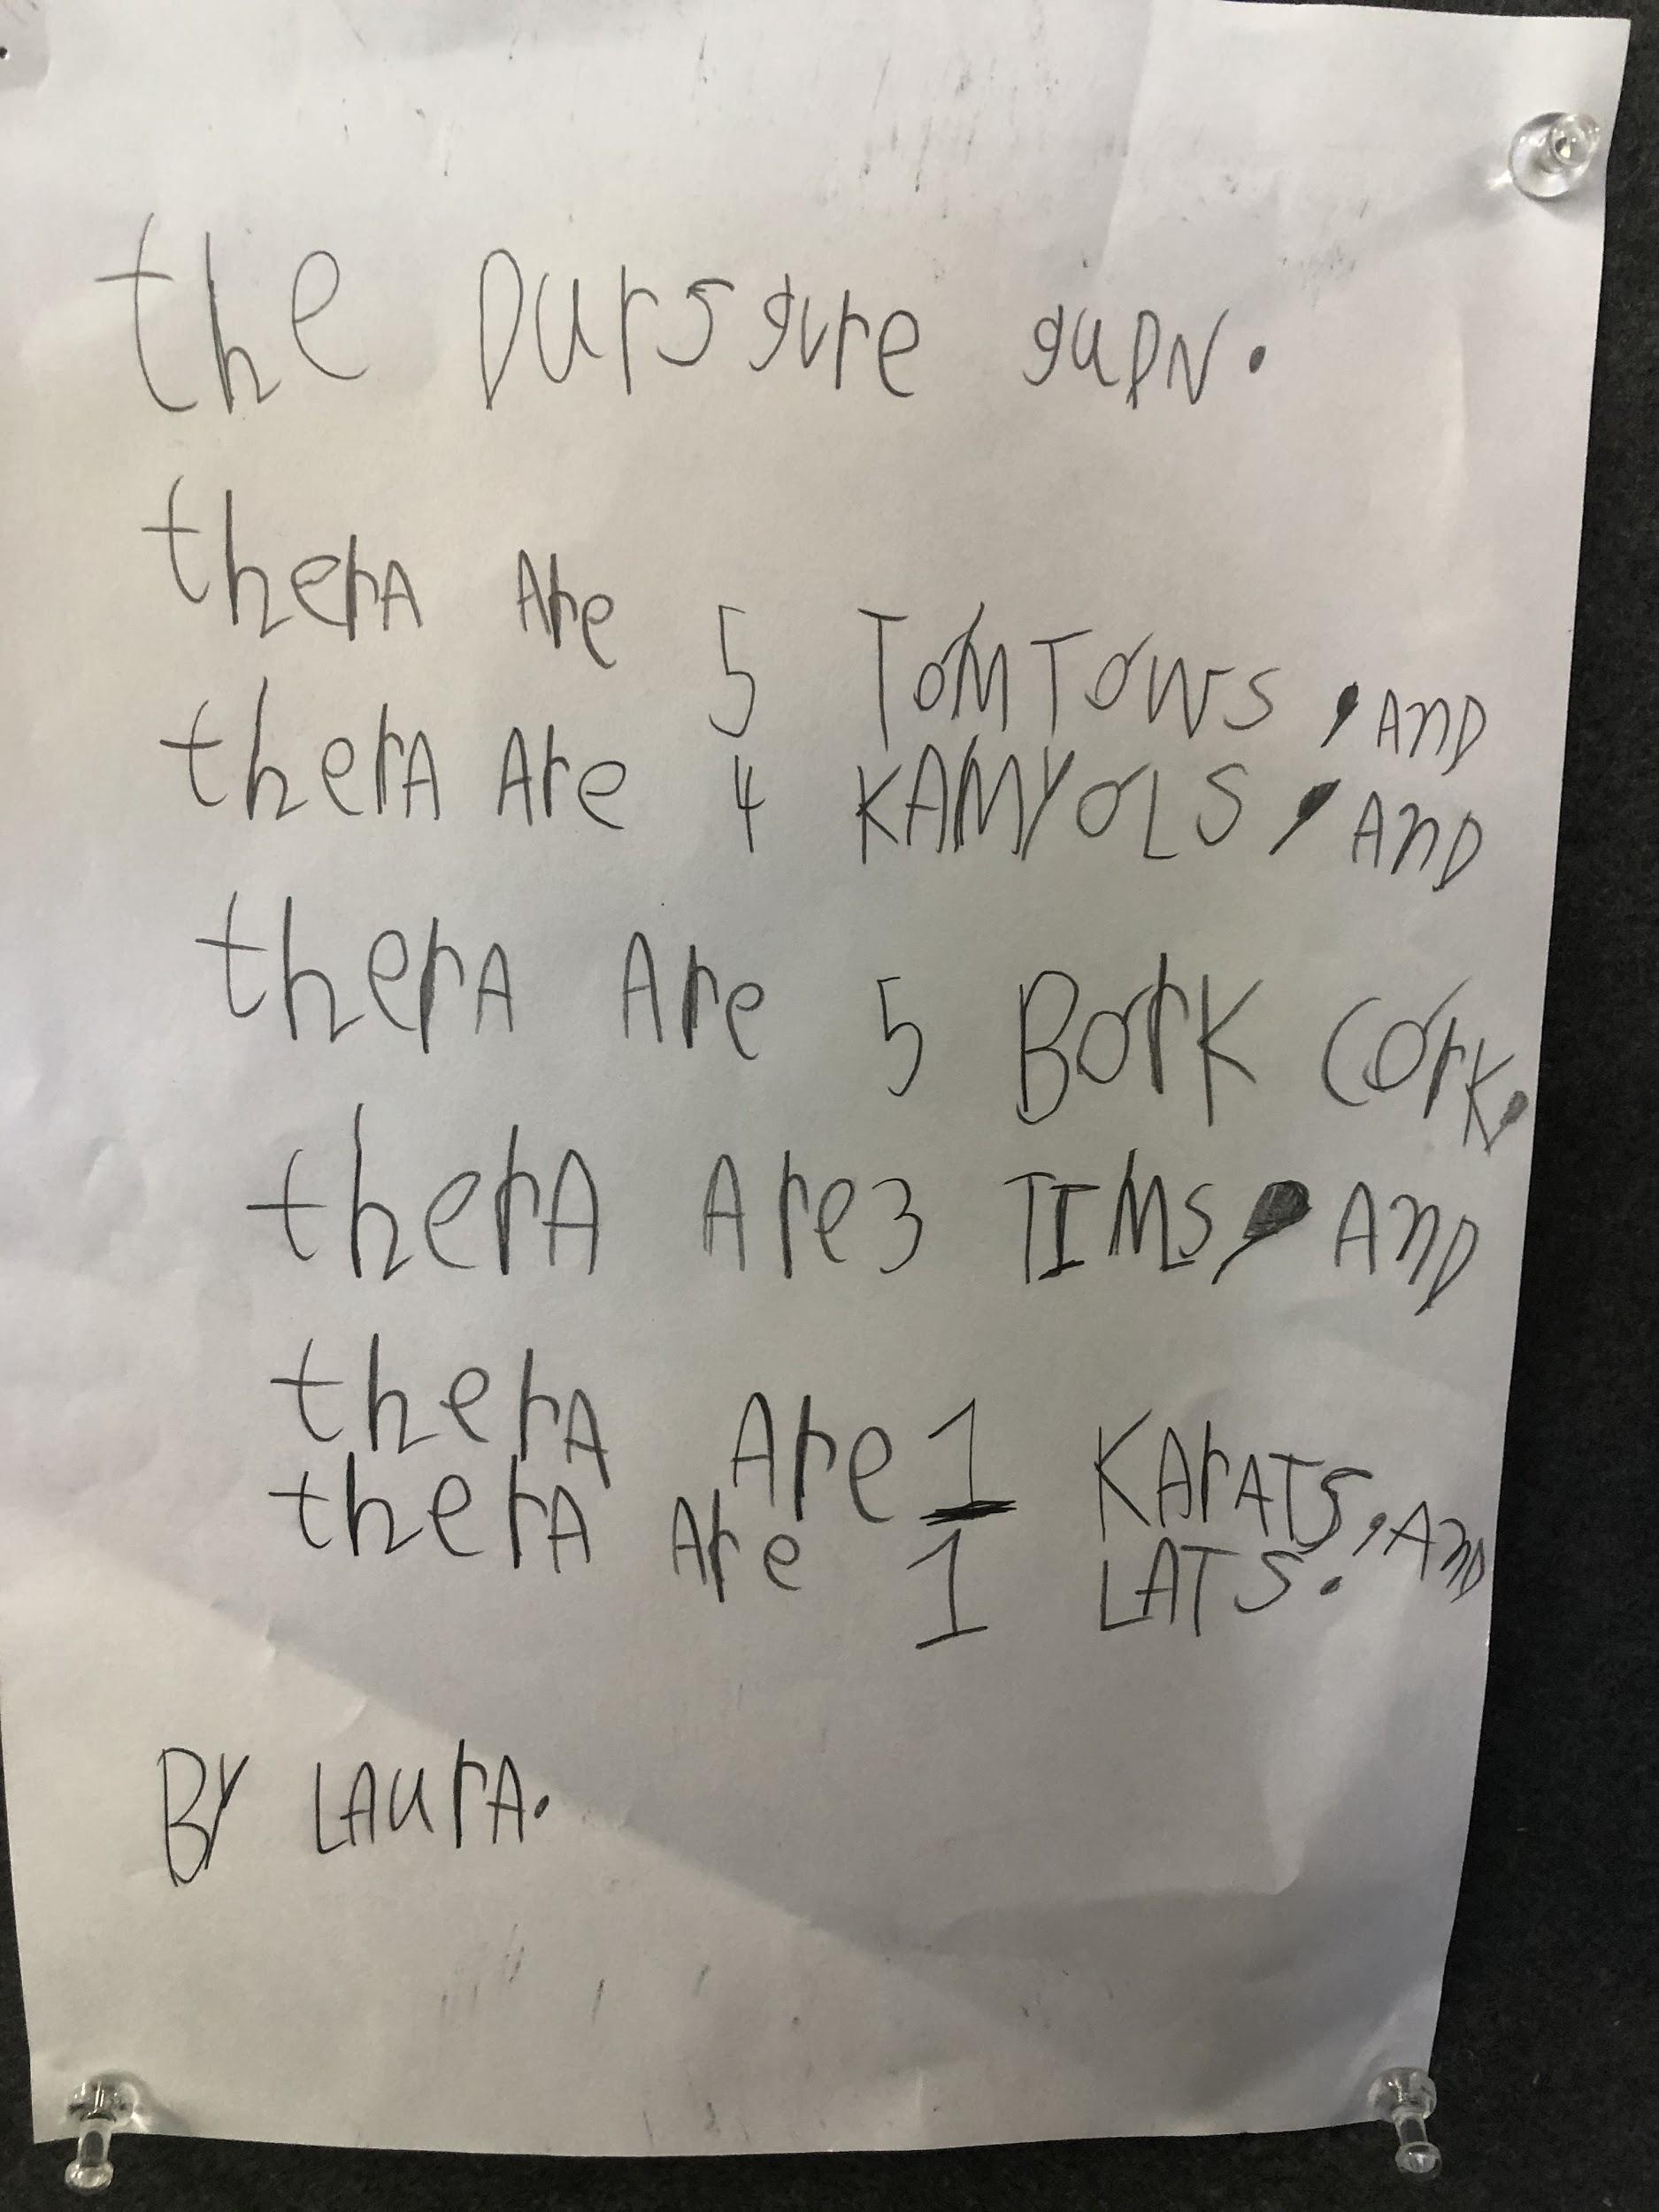 the pursgure gupn.
therA Are 5 TOMTOWS, AnD
therA Are 4 KAMYOLS, AnD
therA Are 5 BorK Cork.
therA Are 3 TIMS, AnD
therA Are 1 KArATS, AnD
therA Are 1 LATS.
BY LAurA.